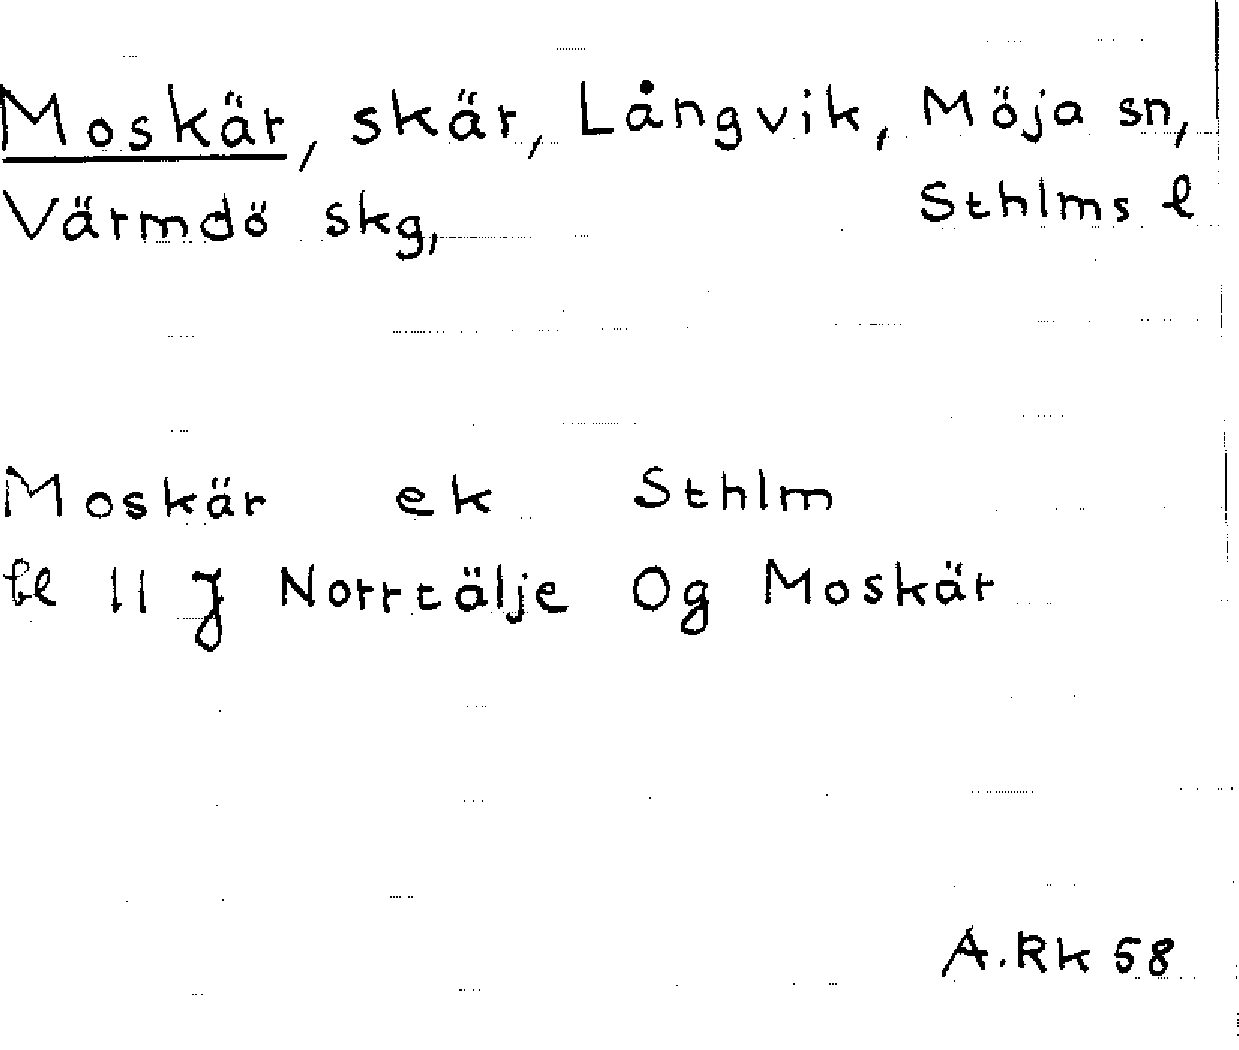 Moskär, skär, Långvik, Möja sn,
Värmdö skg, Sthlms l
Moskär ek Sthlm
bl 11 J Norrtälje Og Moskär
A.Rk 58